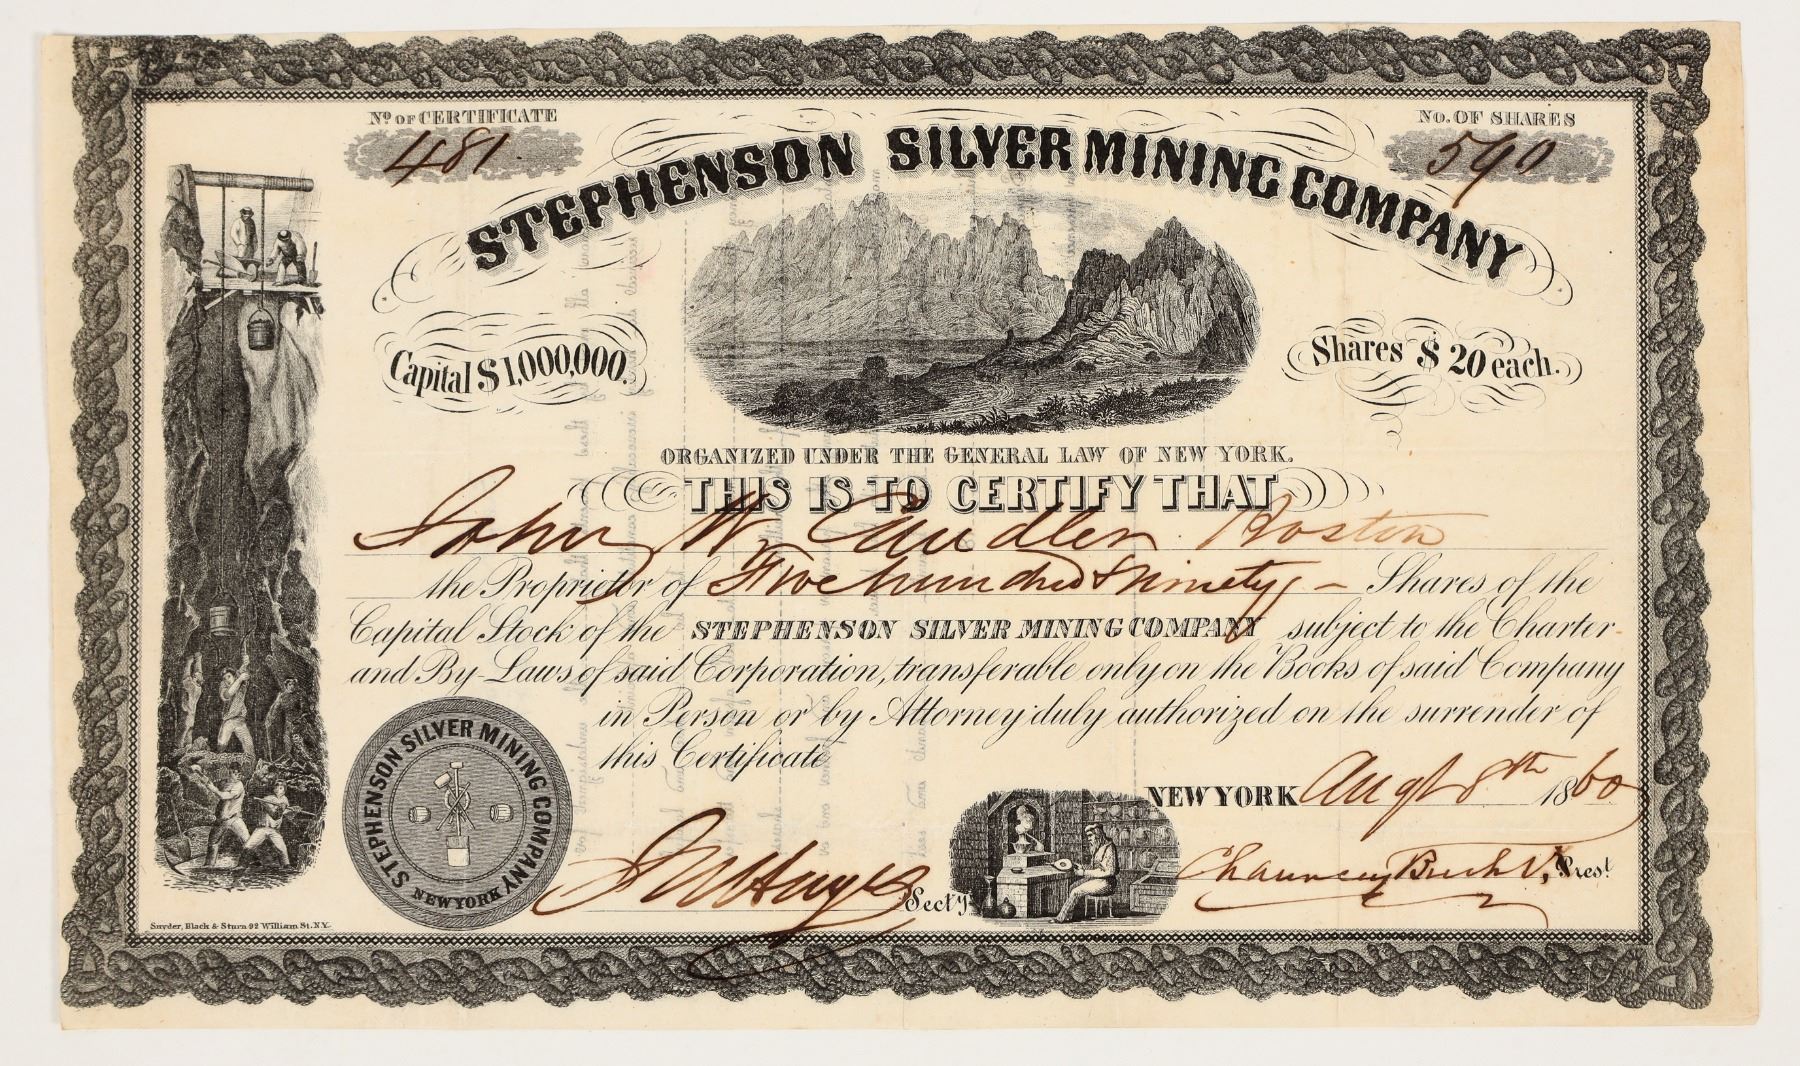 No OF CERTIFICATE
481
No. OF SHARES
590
STEPHENSON SILVER MINING COMPANY
Capital $1,000,000.
Shares $20 each.
ORGANIZED UNDER THE GENERAL LAW OF NEW YORK.
THIS IS TO CERTIFY THAT
John W. Candler Boston
the Proprietor of Five hundred & ninety – Shares of the
Capital Stock of the STEPHENSON SILVER MINING COMPANY subject to the Charter
and By-Laws of said Corporation, transferable only on the Books of said Company
in Person or by Attorney duly authorized on the surrender of
this Certificate
STEPHENSON SILVER MINING COMPANY
NEW YORK
NEW YORK Augt 8th 1860
Hayes Secty
Chauncey Bush V. Prest
Snyder, Black & Sturn 92 William St. N.Y.